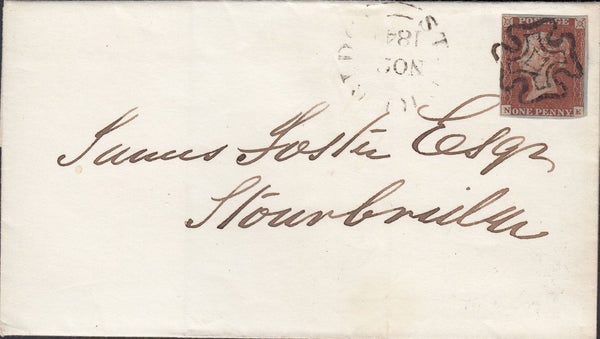 POSTAGE
N ONE PENNY E
NO
184
James Foster Esqr
Stourbridge